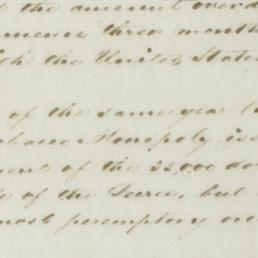 the amount overd
mence three month
the United States
of the same year
Monopoly is
ment of the 25,000 do
of the Decree, but
most peremptory